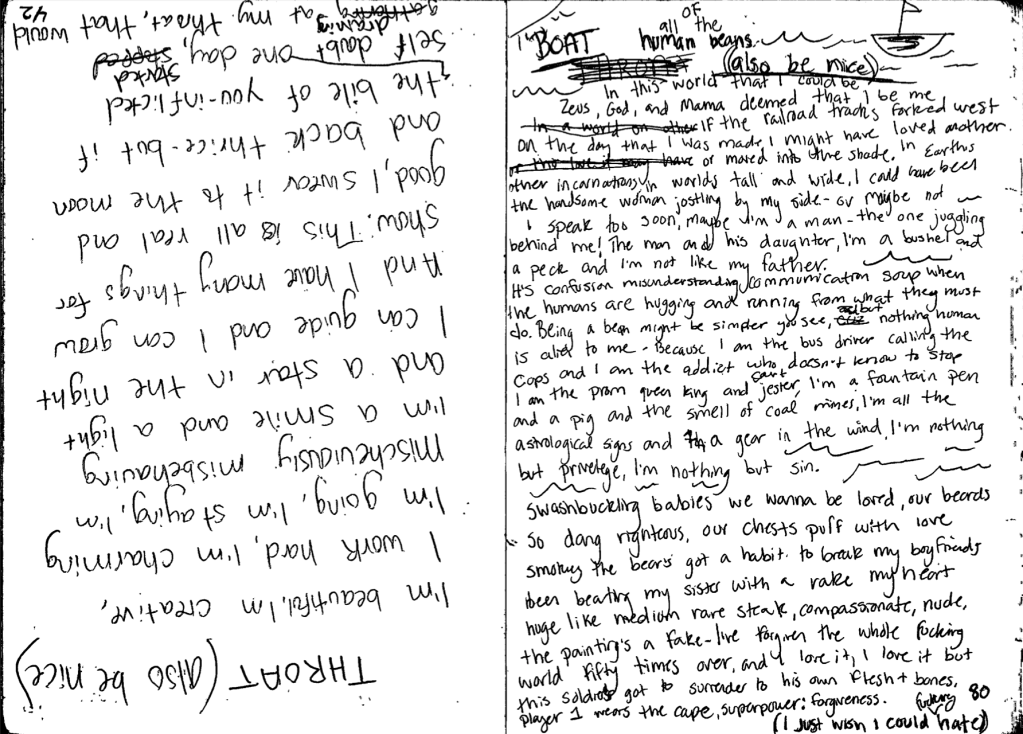 THROAT (also be nice)
I'm beautiful, I'm creative,
I work hard, I'm charming
I'm going, I'm staying, I'm
mischeviously misbehaving
I'm a smile and a light
and a star in the night
I can guide and I can grow
And I have many things for
show. This is all real and
good, I swear it to the moon
and back thrice - but if
the bile of you-inflicted
started
self doubt stopped one day,
draining
gathering at my throat, that would
42
BOAT
of
all the
human beans
THROAT (also be mice)
In this world that I could be
Zeus, God, and Mama deemed that I be me
In a world on other IF the railroad tracks forked west
on the day that I was made, I might have loved another.
or moved into the shade. In Earths
other incarnations, in worlds tall and wide, I could have been
the handsome woman jostling by my side - or maybe not
I speak too soon, maybe I'm a man - the one juggling
behind me! The man and his daughter, I'm a bushel and
a peck and I'm not like my father.
It's confusion misunderstanding communication soup when
the humans are hugging and running from what they must
do. Being a bean might be simpler you see, but nothing human
is alien to me - Because I am the bus driver calling the
cops and I am the addict who doesn't know to stop
I am the prom queen king and saint jester, I'm a fountain pen
and a pig and the smell of coal mines, I'm all the
astrological signs and a gear in the wind, I'm nothing
but privelege, I'm nothing but sin.
swashbuckling babies we wanna be loved, our beards
so dang righteous, our chests puff with love
smokey the bear's got a habit to break my boyfriends
been beating my sister with a rake my heart
huge like medium rare steak, compassionate, nude,
the painting's a fake - I've forgiven the whole fucking
world fifty times over, and I love it, I love it but
this soldier's got to surrender to his own flesh + bones,
player 1 wears the cape, superpower: forgiveness.
fucking
80
(I just wish I could hate)